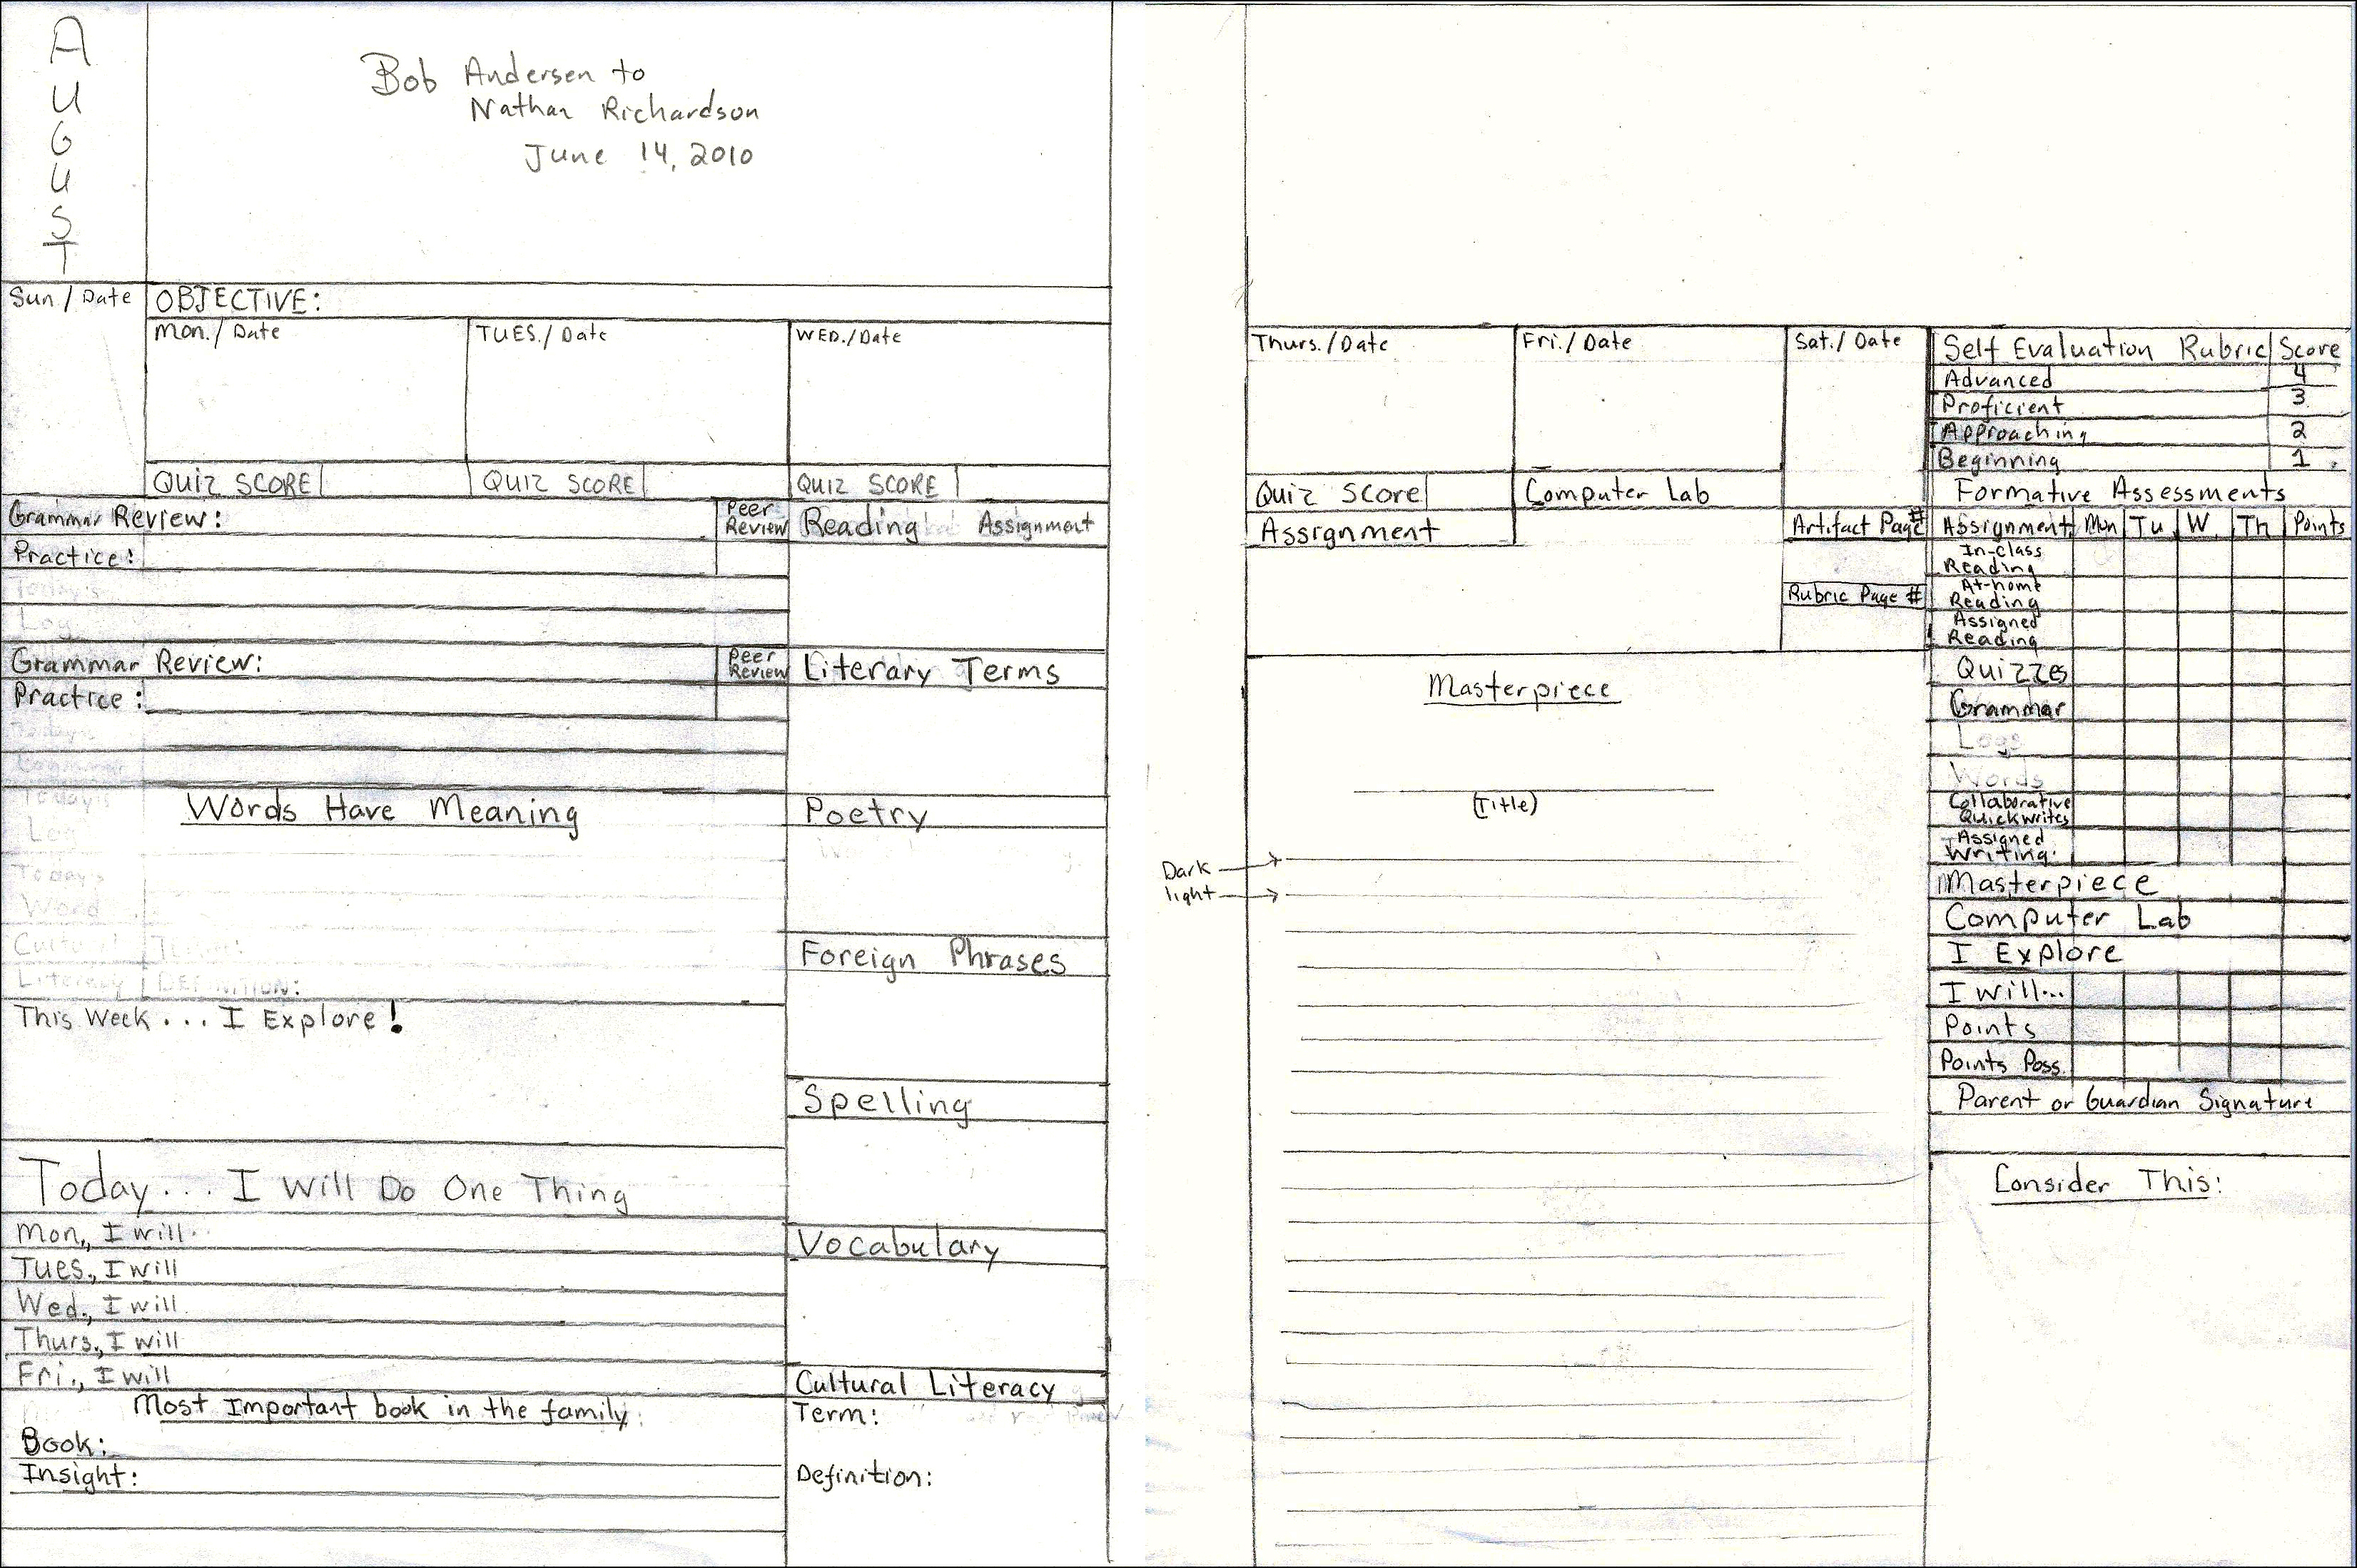 AUGUST
Bob Andersen to
Nathan Richardson
June 14, 2010
Sun / Date
OBJECTIVE:
Mon. / Date
TUES. / Date
WED. / Date
QUIZ SCORE
QUIZ SCORE
QUIZ SCORE
Grammar Review:
Peer
Review
Practice:
Today's
Log
Grammar Review:
Peer
Review
Practice:
Today's
Log
Today's
Word
Words Have Meaning
Cultural
Literacy
TERM:
DEFINITION:
This Week ... I Explore!
Today... I Will Do One Thing
Mon., I will..
Tues., I will
Wed., I will
Thurs., I will
Fri., I will
Most Important book in the family:
Book:
Insight:
Reading Assignment
Literary Terms
Poetry
Foreign Phrases
Spelling
Vocabulary
Cultural Literacy
Term:
Definition:
Thurs. / Date
Fri. / Date
Sat. / Date
Quiz Score
Computer Lab
Assignment
Artifact Page #
Rubric Page #
Masterpiece
(Title)
Dark
light
Self Evaluation Rubric Score
Advanced 4
Proficient 3
Approaching 2
Beginning 1
Formative Assessments
Assignment Mon Tu W. Th Points
In-class
Reading
At-home
Reading
Assigned
Reading
Quizzes
Grammar
Logs
Words
Collaborative
Quickwrites
Assigned
Writing
Masterpiece
Computer Lab
I Explore
I will...
Points
Points Poss.
Parent or Guardian Signature
Consider This: